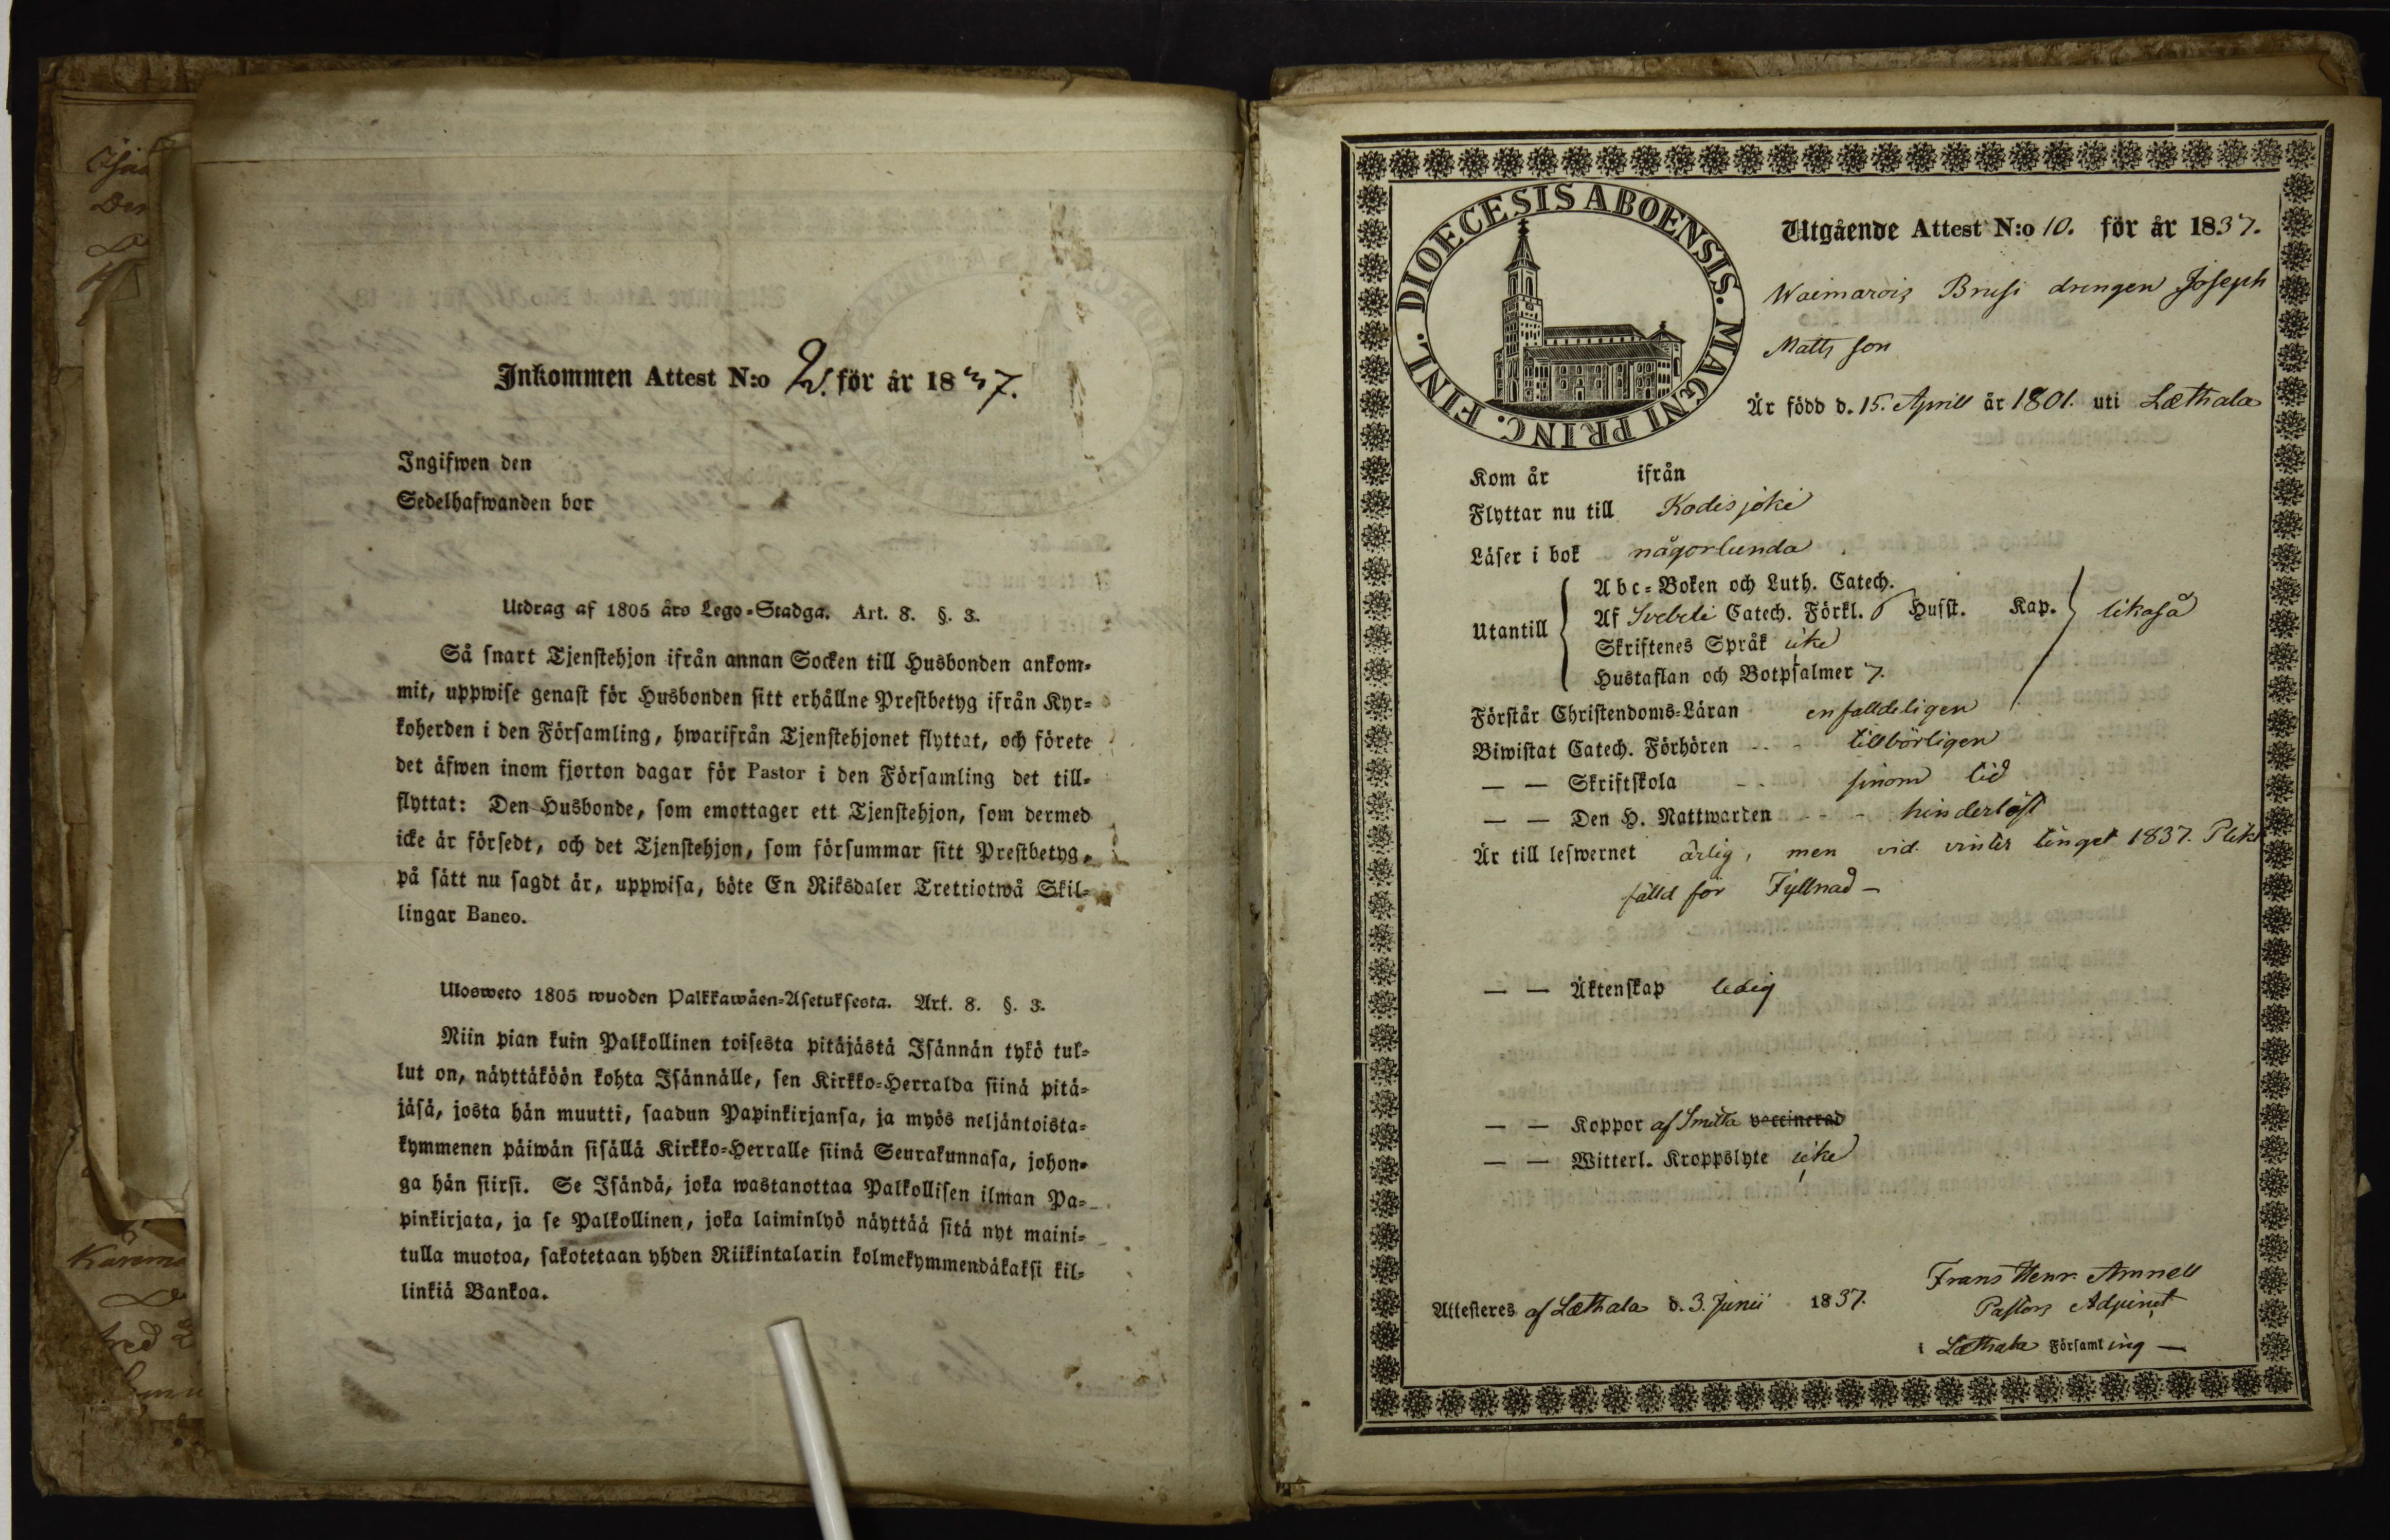 Inkommen Attest N:o 2. för år 1837.
Ingifwen den
Sedelhafwanden bor
Utdrag af 1805 års Lego-Stadga. Art. 8. §. 3.
Så snart Tjenstehjon ifrån annan Socken till Husbonden ankom-
mit, uppwise genast för Husbonden sitt erhållne Prestbetyg ifrån Kyr-
koherden i den Församling, hwarifrån Tjenstehjonet flyttat, och förete
det äfwen inom fjorton dagar för Pastor i den Församling det till-
flyttat: Den Husbonde, som emottager ett Tjenstehjon, som dermed
icke är försedt, och det Tjenstehjon, som försummar sitt Prestbetyg,
på sätt nu sagdt är, uppwisa, böte En Riksdaler Trettiotwå Skil-
lingar Banco.
Ulosweto 1805 wuoden Palkkawäen-Asetuksesta. Art. 8. §. 3.
Niin pian kuin Palkollinen toisesta pitäjästä Isännän tykö tul-
lut on, näyttäköön kohta Isännälle, sen Kirkko-Herralda siinä pitä-
jäsä, josta hän muutti, saadun Papinkirjansa, ja myös neljäntoista-
kymmenen päiwän sisällä Kirkko-Herralle siinä Seurakunnasa, johon-
ga hän siirsi. Se Isändä, joka wastanottaa Palkollisen ilman Pa-
pinkirjata, ja se Palkollinen, joka laiminlyö näyttää sitä nyt maini-
tulla muotoa, sakotetaan yhden Riikintalarin kolmekymmendäkaksi kil-
linkiä Bankoa.
DIOECESIS ABOENSIS. MAGNI PRINC. FINL.
Utgående Attest N:o 10. för år 1837.
Waimarois Brusi drengen Joseph
Matts son
Är född d. 15. Aprill år 1801. uti Læthala
Kom år ifrån
Flyttar nu till Kodisjoki
Läser i bok någorlunda
Utantill
Abc-Boken och Luth. Catech.
Af Svebeli Catech. Förkl. 6 Husst. Kap. likaså
Skriftenes Språk icke
Hustaflan och Botpsalmer 7.
Förstår Christendoms-Läran enfalldeligen
Biwistat Catech. Förhören - - - tillbörligen
— — Skriftskola - - sinom tid
— — Den H. Nattwarden - - - hinderlöst
Är till lefwernet ärlig, men vid vinter tinget 1837. Plikt
fälld för Fyllnad —
— — Äktenskap ledig
— — Koppor af Smitta vaccinerad
— — Witterl. Kroppslyte icke
Attesteres af Læthala d. 3. Junii 1837.
Frans Henr. Amnell
Pastors Adjunct
i Læthala Församling —